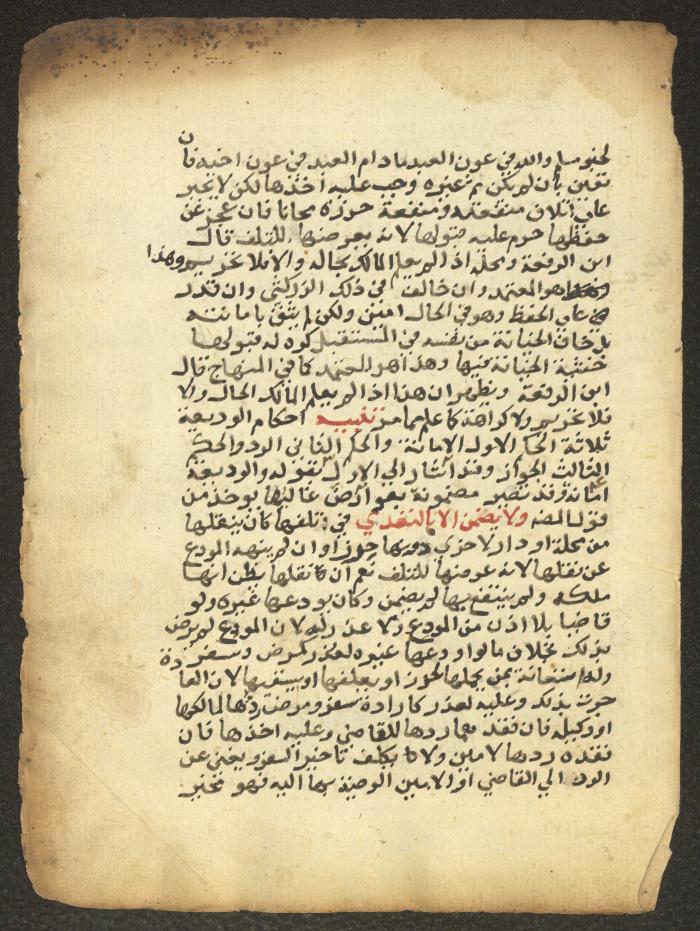 لخبر مسلم والله في عون العبد ما دام العبد في عون اخيه فان
تعين بأن لم يكن ثم غيره وجب عليه اخذها لكن لا يجبر
علي اتلاف منفعته ومنفعة حرزه مجانا فان عجز عن
حفظها حرم عليه قبولها لانه يعرضها للتلف قال
ابن الرفعة ومحله اذا لم يعلم المالك بحاله والا فلا تحريم وهذا
هو المعتمد وان خالف في ذلك الزركشي وان قدر
علي الحفظ وهو في الحال امين ولكن لم يثق بامانته
بل خاف الخيانة من نفسه في المستقبل كره له قبولها
خشية الخيانة فيها وهذا هو المعتمد كما في المنهاج قال
ابن الرفعة ويظهر ان هذا اذا لم يعلم المالك الحال والا
فلا تحريم ولا كراهة كما علم مما مر تنبيه احكام الوديعة
ثلاثة الحكم الاول الامانة والحكم الثاني الرد والحكم
الثالث الجواز وقد اشار الي الاول بقوله والوديعة
امانة وقد تصير مضمونة بعوارض غالبها يوخذ من
قول المصنف ولا يضمن الا بالتعدي في تلفها كان ينقلها
من محلة او دار لاخري دونها حرزا وان لم ينهه المودع
عن نقلها لانه عرضها للتلف نعم ان نقلها يظن انها
ملكه ولم ينتفع بها لم يضمن وكان يودعها غيره ولو
قاضيا بلا اذن من المودع ولا عذر له لان المودع لم يرض
بذلك بخلاف ما لو اودعها غيره لعذر كمرض وسفر
وله استعانة بمن يحملها لحرز او يعلفها او يسقيها لان العادة
جرت بذلك وعليه لعذر كارادة سفر ومرض ردها لمالكها
او وكيله فان فقدهما ردها للقاضي وعليه اخذها فان
فقده ردها لامين ولا يكلف تاخير السفر ويغني عن
الرد الي القاضي او الامين الوصية بها اليه فهو مخير